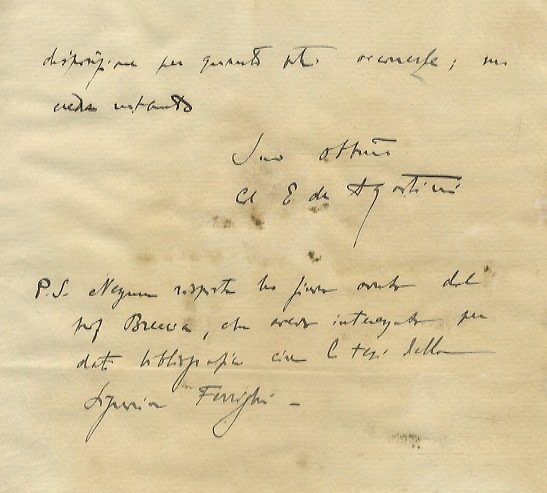 disposizione per quanto potrà occorrerle; mi
creda intanto
Suo obbmo
E de Agostini
P.S. Nessuna risposta ho finora avuto dal
prof Brecca, che avevo interessato per
dati bibliografici circa la tesi della
Signorina Ferrighi –